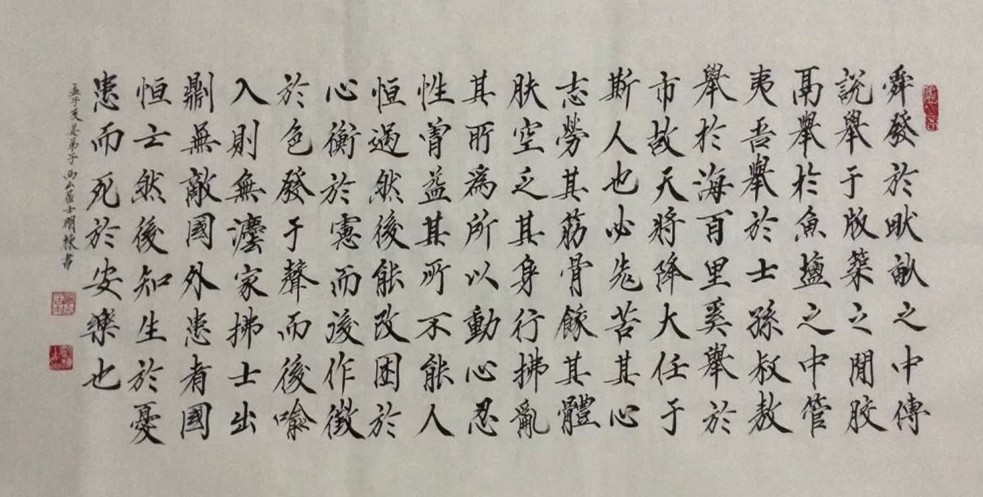 舜發於畎畝之中傅
說舉于版築之閒膠
鬲舉於魚鹽之中管
夷吾舉於士孫叔敖
舉於海百里奚舉於
市故天將降大任于
斯人也必先苦其心
志勞其筋骨餓其體
肤空乏其身行拂亂
其所為所以動心忍
性曾益其所不能人
恒過然後能改困於
心衡於慮而後作徵
於色發于聲而後喻
入則無灋家拂士出
則無敵國外患者國
恒亡然後知生於憂
患而死於安樂也
孟子 弟子 西山居士 書